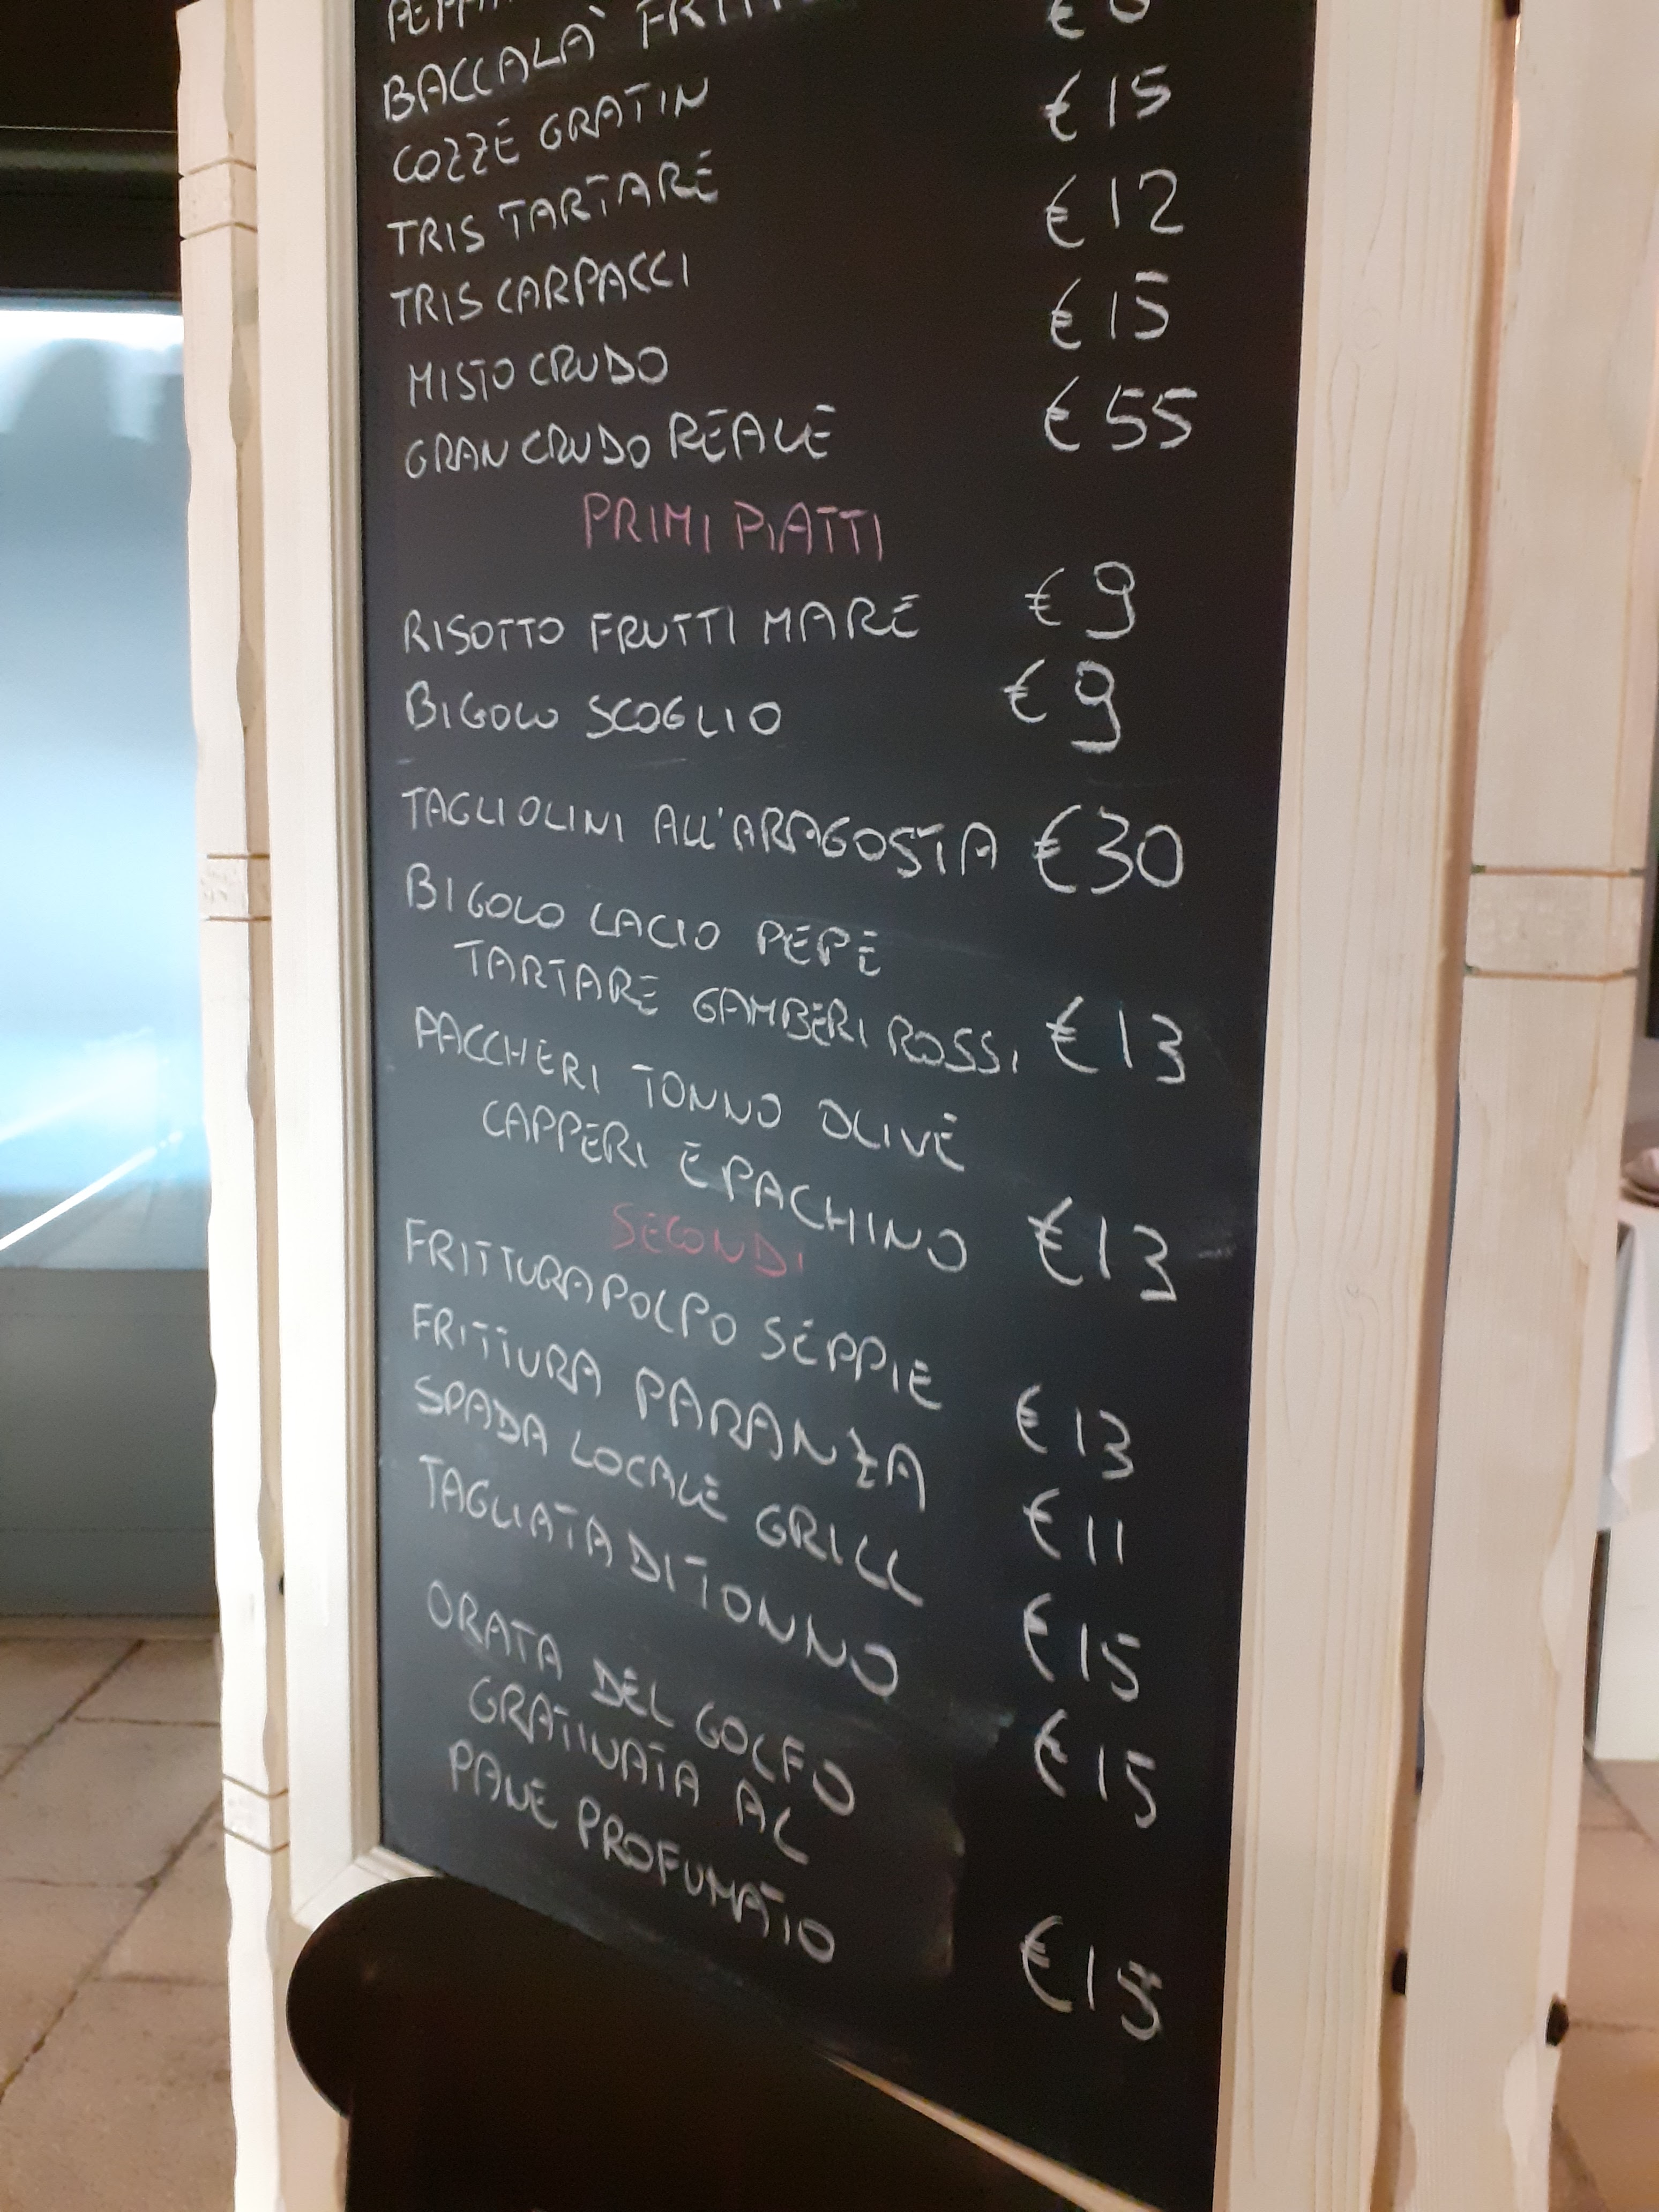 BACCALA'
COZZE GRATIN
TRIS TARTARE € 15
TRIS CARPACCI € 12
MISTO CRUDO € 15
GRAN CRUDO REALE € 55
PRIMI PIATTI
RISOTTO FRUTTI MARE € 9
BIGOLO SCOGLIO € 9
TAGLIOLINI ALL'ARAGOSTA € 30
BIGOLO CACIO PEPE
TARTARE GAMBERI ROSSI € 13
PACCHERI TONNO OLIVE
CAPPERI E PACHINO € 13
SECONDI
FRITTURA POLPO SEPPIE € 13
FRITTURA PARANZA € 11
SPADA LOCALE GRILL € 15
TAGLIATA DI TONNO € 15
ORATA DEL GOLFO
GRATINATA AL
PANE PROFUMATO